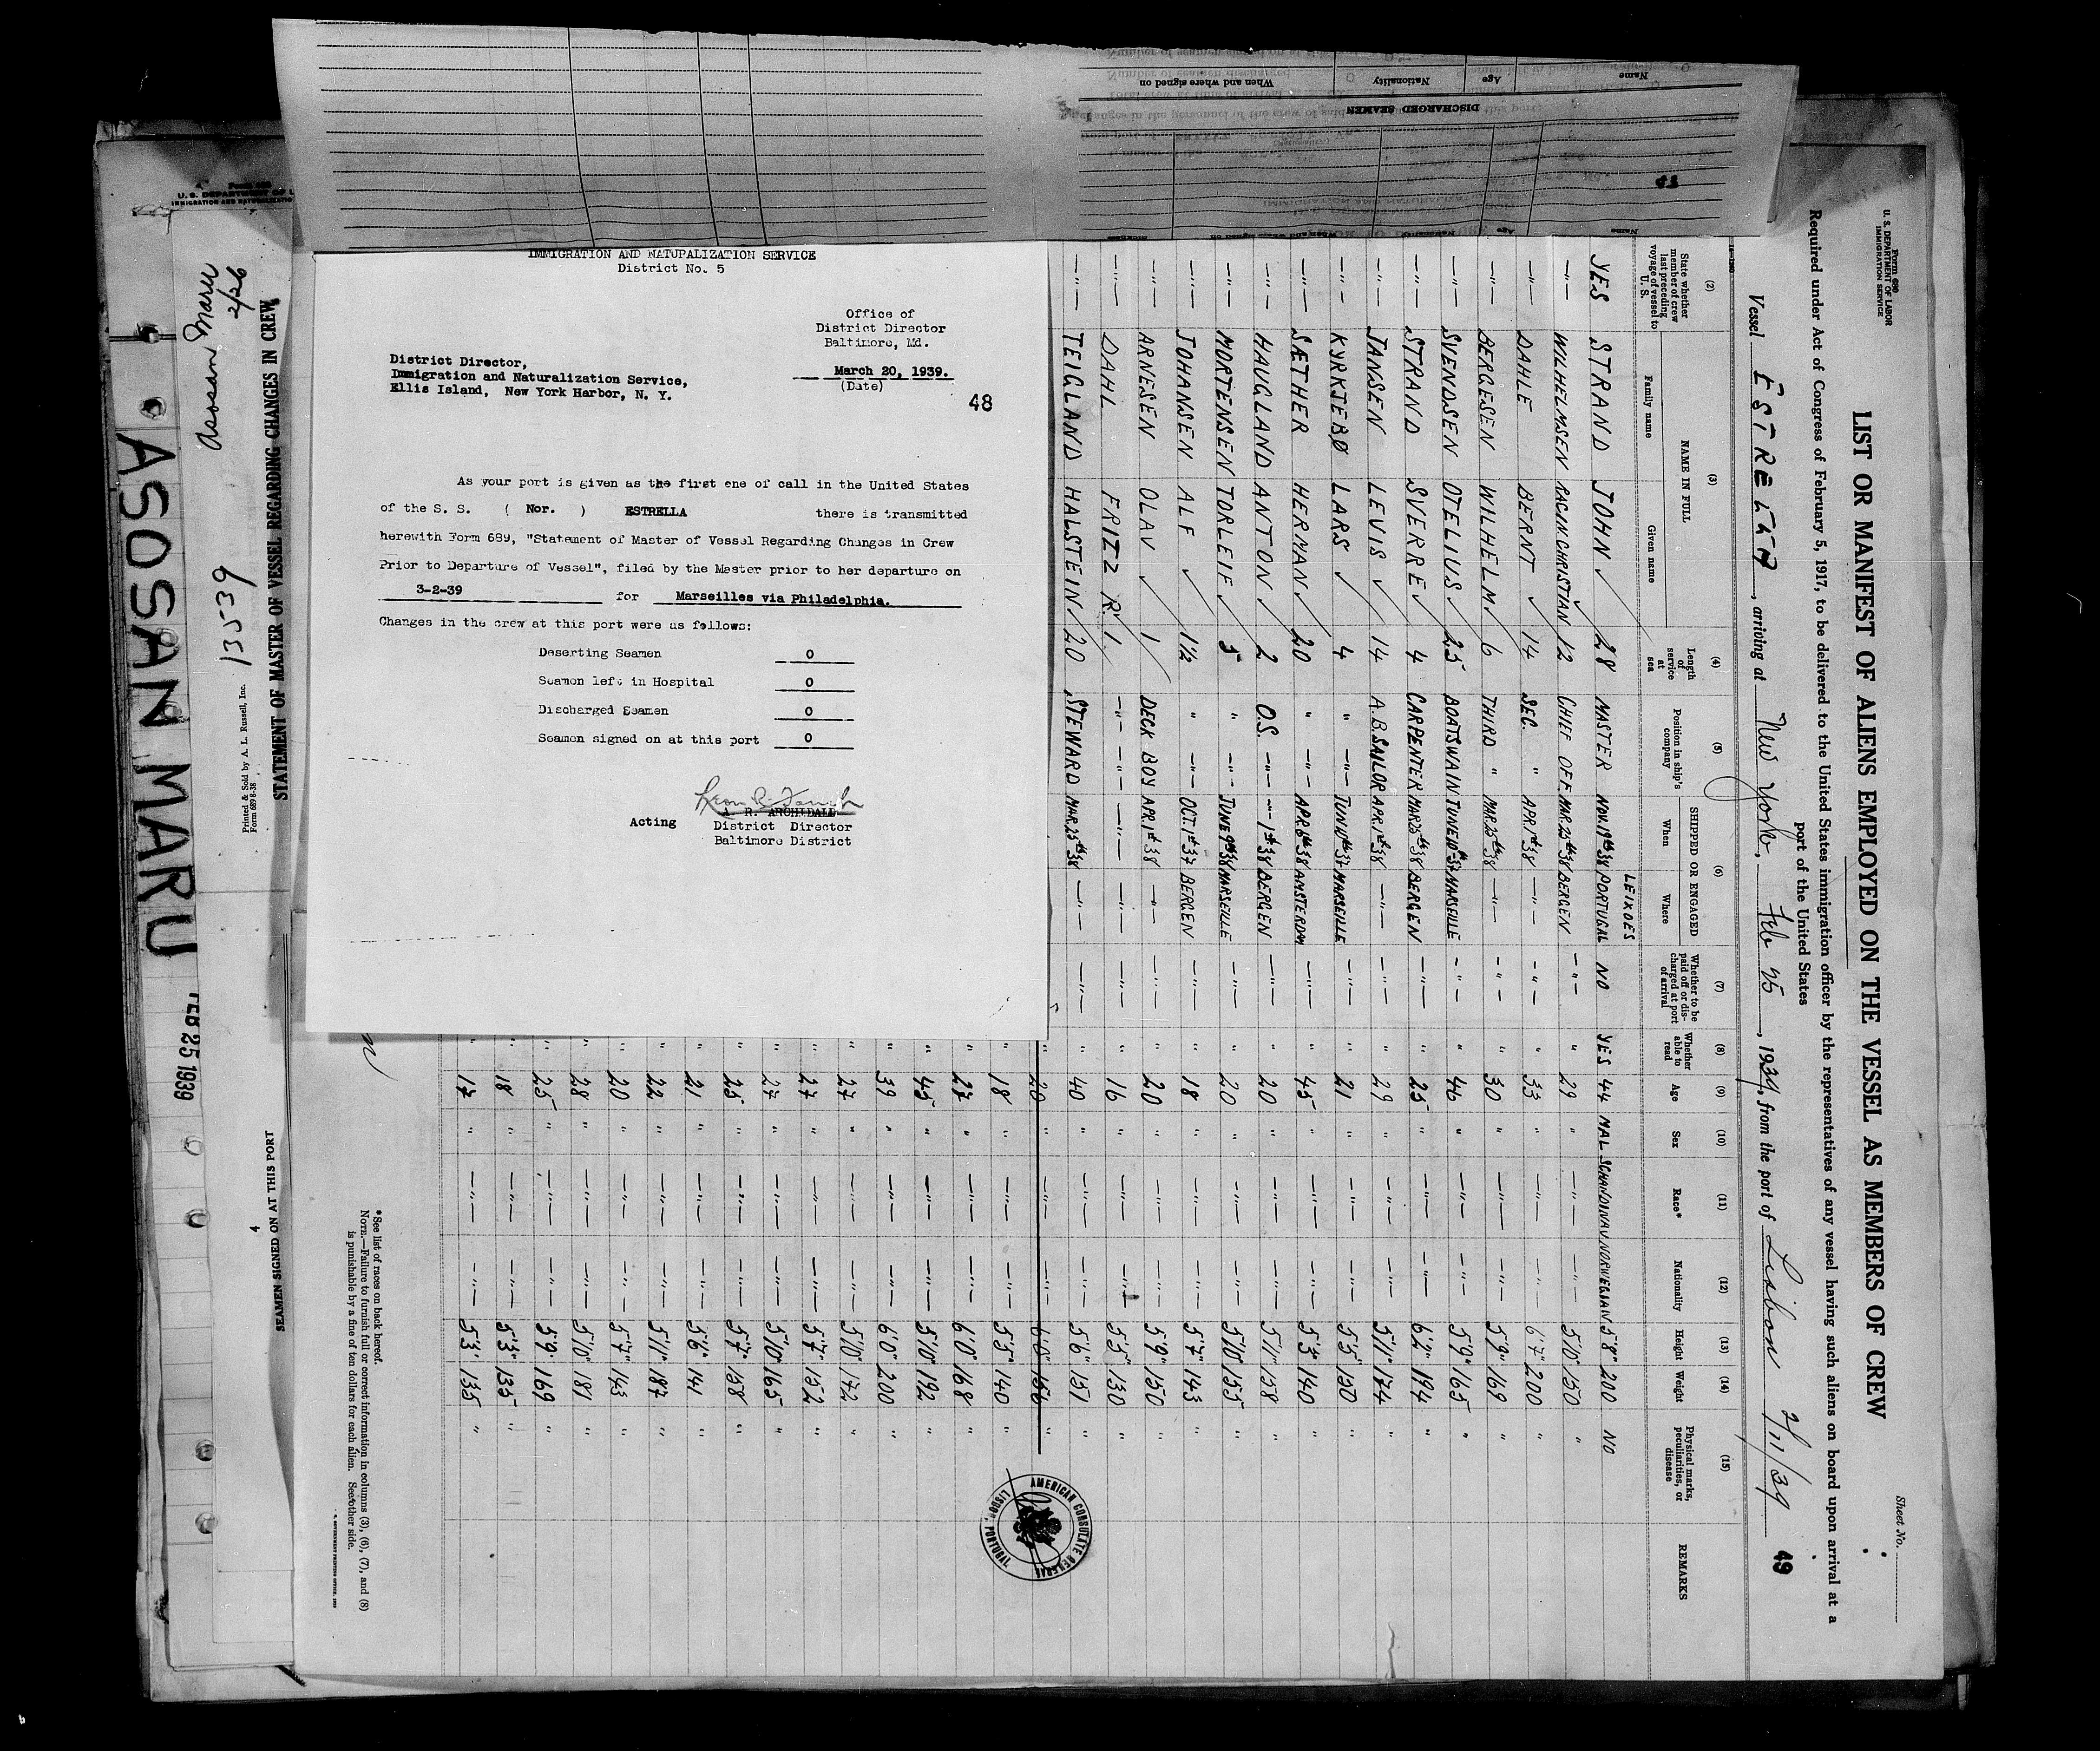 IMMIGRATION AND NATUPALIZATION SERVICE
District No. 5
Office of
District Director
Baltimore, Md.
District Director,
Immigration and Naturalization Service,
Ellis Island, New York Harbor, N. Y.
March 20, 1939.
(Date)
48
As your port is given as the first one of call in the United States
of the S. S. ( Nor. ) ESTRELLA there is transmitted
herewith Form 689, "Statement of Master of Vessel Regarding Changes in Crew
Prior to Departure of Vessel", filed by the Master prior to her departure on
3-2-39 for Marseilles via Philadelphia.
Changes in the crew at this port were as follows:
Deserting Seamen 0
Seamen left in Hospital 0
Discharged Seamen 0
Seamen signed on at this port 0
A. R. ARCHIBALD
Acting District Director
Baltimore District
Form 680
U. S. DEPARTMENT OF LABOR
IMMIGRATION SERVICE
Sheet No.
LIST OR MANIFEST OF ALIENS EMPLOYED ON THE VESSEL AS MEMBERS OF CREW
Required under Act of Congress of February 5, 1917, to be delivered to the United States immigration officer by the representatives of any vessel having such aliens on board upon arrival at a
port of the United States
Vessel ESTRELLA, arriving at New York, Feb 25, 1939, from the port of Lisbon 2/11/39
49
(2) (3) (4) (5) (6) (7) (8) (9) (10) (11) (12) (13) (14) (15)
State whether member of crew last preceding voyage of vessel to U. S.
NAME IN FULL
Family name Given name
Length of service at sea
Position in ship's company
SHIPPED OR ENGAGED
When Where
Whether to be paid off or discharged at port of arrival
Whether able to read
Age
Sex
Race*
Nationality
Height
Weight
Physical marks, peculiarities, or disease
REMARKS
LEIXOES
YES STRAND JOHN 28 MASTER NOV. 19th 38 PORTUGAL NO YES 44 MAL SCHANDINAV NORWEGIAN 5'8" 200 NO
—"— WILHELMSEN RAGIN CHRISTIAN 12 CHIEF OFF MAR. 25th 38 BERGEN —"— " 29 " —"— —"— 5'10" 150 "
—"— DAHLE BERNT 14 SEC. " APR 1st 38 —"— —"— " 33 " —"— —"— 6'7" 200 "
—"— BERGESEN WILHELM 6 THIRD " MAR. 25th 38 —"— —"— " 30 " —"— —"— 5'9" 169 "
—"— SVENDSEN OTELIUS 25 BOATSWAIN JUNE 10th 37 MARSEILLE —"— " 46 " —"— —"— 5'9" 165 "
—"— STRAND SVERRE 4 CARPENTER MAR 25th 38 BERGEN —"— " 25 " —"— —"— 6'2" 194 "
—"— JANSEN LEVIS 14 A.B. SAILOR APR. 1st 38 —"— —"— " 29 " —"— —"— 5'11" 174 "
—"— KYRKJEBØ LARS 4 " —"— JUN 10th 37 MARSEILLE —"— " 21 " —"— —"— 5'5" 150 "
—"— SÆTHER HERMAN 20 " —"— APR. 6th 38 AMSTERDAM —"— " 45 " —"— —"— 5'3" 140 "
—"— HAUGLAND ANTON 2 O.S. —"— —"— 1st 38 BERGEN —"— " 20 " —"— —"— 5'11" 158 "
—"— MORTENSEN TORLEIF 5 " —"— JUNE 9th 38 MARSEILLE —"— " 20 " —"— —"— 5'10" 155 "
—"— JOHANSEN ALF 1½ " —"— OCT. 1st 37 BERGEN —"— " 18 " —"— —"— 5'7" 143 "
—"— ARNESEN OLAV 1 DECK BOY APR. 1st 38 —"— —"— " 20 " —"— —"— 5'9" 150 "
—"— DAHL FRIZZ R. 1 —"— —"— —"— —"— —"— " 16 " —"— —"— 5'5" 130 "
—"— TEIGLAND HALSTEIN 20 STEWARD MAR. 25th 38 —"— —"— " 40 " —"— —"— 5'6" 151 "
" 20 " —"— —"— 6'0" 150 "
" 18 " —"— —"— 5'5" 140 "
" 27 " —"— —"— 6'0" 168 "
" 45 " —"— —"— 5'10" 192 "
" 39 " —"— —"— 6'0" 200 "
" 27 " —"— —"— 5'10" 172 "
" 27 " —"— —"— 5'7" 152 "
" 27 " —"— —"— 5'10" 165 "
" 25 " —"— —"— 5'7" 158 "
" 21 " —"— —"— 5'6" 141 "
" 22 " —"— —"— 5'11" 187 "
" 20 " —"— —"— 5'7" 143 "
" 28 " —"— —"— 5'10" 181 "
" 25 " —"— —"— 5'9" 169 "
" 18 " —"— —"— 5'3" 135 "
" 17 " —"— —"— 5'3" 135 "
* See list of races on back hereof.
NOTE.—Failure to furnish full or correct information in columns (3), (6), (7), and (8)
is punishable by a fine of ten dollars for each alien. See other side.
AMERICAN CONSULATE GENERAL
LISBON, PORTUGAL
DISCHARGED SEAMEN
Name Age Nationality When and where signed on
Asosan Maru
2/26
13539
STATEMENT OF MASTER OF VESSEL REGARDING CHANGES IN CREW
Printed & Sold by A. L. Russell, Inc.
Form 689 8-38
4
SEAMEN SIGNED ON AT THIS PORT
ASOSAN MARU
FEB 25 1939